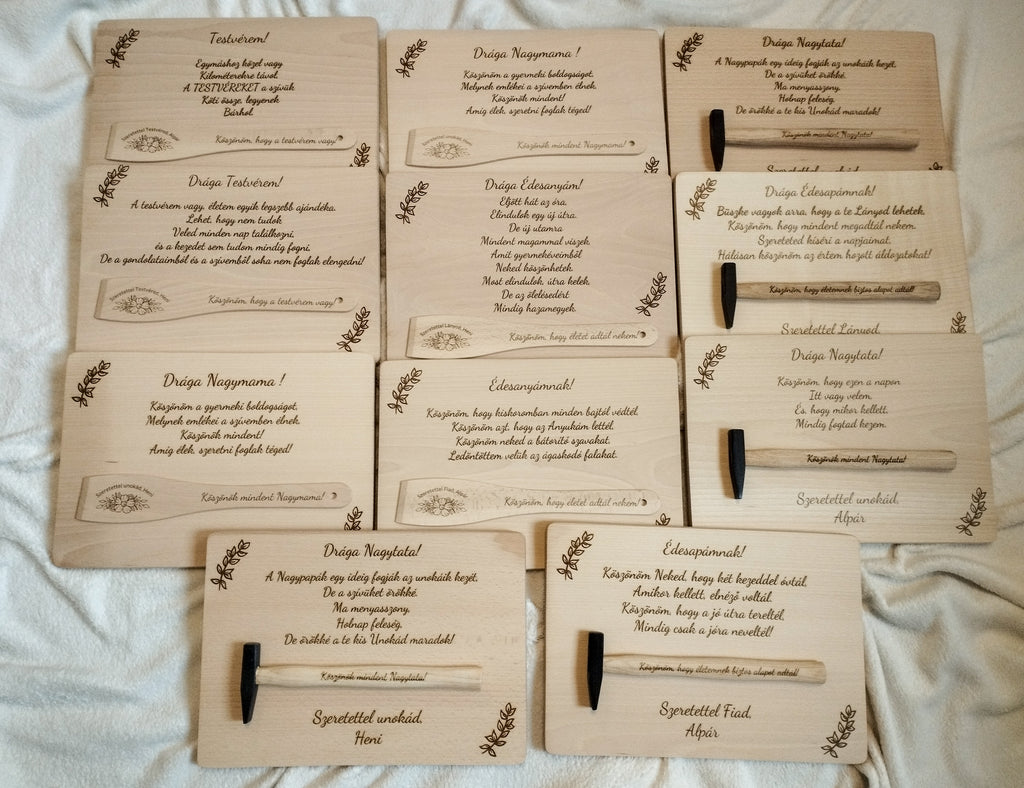 Testvérem!
Egymáshoz közel vagy
Kilométerekre távol,
A TESTVÉREKET a szívük
Köti össze, legyenek
Bárhol.
Szeretettel Testvéred, Alpár
Köszönöm, hogy a testvérem vagy!
Drága Nagymama !
Köszönöm a gyermeki boldogságot,
Melynek emlékei a szívemben élnek.
Köszönök mindent!
Amíg élek, szeretni foglak téged!
Szeretettel unokád, Heni
Köszönök mindent Nagymama!
Drága Nagytata!
A Nagypapák egy ideig fogják az unokáik kezét,
De a szívüket örökké.
Ma menyasszony,
Holnap feleség,
De örökké a te kis Unokád maradok!
Köszönök mindent Nagytata!
Szeretettel unokád,
Drága Testvérem!
A testvérem vagy, életem egyik legszebb ajándéka.
Lehet, hogy nem tudok
Veled minden nap találkozni,
és a kezedet sem tudom mindig fogni,
De a gondolataimból és a szívemből soha nem foglak elengedni!
Szeretettel Testvéred, Heni
Köszönöm, hogy a testvérem vagy!
Drága Édesanyám!
Eljött hát az óra,
Elindulok egy új útra.
De új utamra
Mindent magammal viszek,
Amit gyermekéveimből
Neked köszönhetek.
Most elindulok, útra kelek,
De az ölelésedért
Mindig hazamegyek.
Szeretettel Lányod, Heni
Köszönöm, hogy életet adtál nekem!
Drága Édesapámnak!
Büszke vagyok arra, hogy a te Lányod lehetek,
Köszönöm, hogy mindent megadtál nekem.
Szereteted kíséri a napjaimat,
Hálásan köszönöm az értem hozott áldozatokat!
Köszönöm, hogy életemnek biztos alapot adtál!
Szeretettel Lányod,
Drága Nagymama !
Köszönöm a gyermeki boldogságot,
Melynek emlékei a szívemben élnek.
Köszönök mindent!
Amíg élek, szeretni foglak téged!
Szeretettel unokád, Heni
Köszönök mindent Nagymama!
Édesanyámnak!
Köszönöm, hogy kiskoromban minden bajtól védtél,
Köszönöm azt, hogy az Anyukám lettél.
Köszönöm neked a bátorító szavakat,
Ledöntöttem velük az ágaskodó falakat.
Szeretettel Fiad, Alpár
Köszönöm, hogy életet adtál nekem!
Drága Nagytata!
Köszönöm, hogy ezen a napon
Itt vagy velem,
És, hogy mikor kellett,
Mindig fogtad kezem.
Köszönök mindent Nagytata!
Szeretettel unokád,
Alpár
Drága Nagytata!
A Nagypapák egy ideig fogják az unokáik kezét,
De a szívüket örökké.
Ma menyasszony,
Holnap feleség,
De örökké a te kis Unokád maradok!
Köszönök mindent Nagytata!
Szeretettel unokád,
Heni
Édesapámnak!
Köszönöm Neked, hogy két kezeddel óvtál,
Amikor kellett, elnéző voltál,
Köszönöm, hogy a jó útra tereltél,
Mindig csak a jóra neveltél!
Köszönöm, hogy életemnek biztos alapot adtál!
Szeretettel Fiad,
Alpár